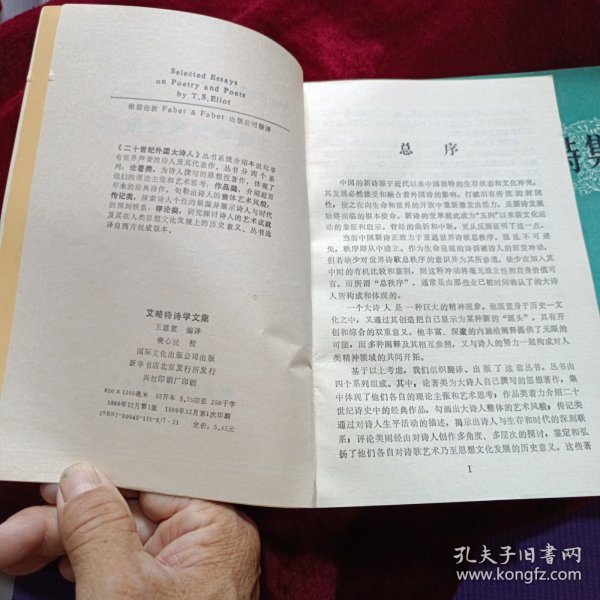 Selected Essays
on Poetry and Poets
by T.S.Eliot
根据伦敦 Faber & Faber 出版公司版译
《二十世纪外国大诗人》丛书系统介绍本世纪享
有世界声誉的诗人及其代表作。丛书分四个系
列：论著类，为诗人撰写的思想性著作，体现了
他们的理论主张和艺术思考；作品类，介绍近百
年来的经典诗作，勾勒出诗人的整体艺术风貌；
传记类，探索诗人个性的根源并展示诗人与时代
的深刻联系；评论类，研究探讨诗人的艺术成就
及其在人类思想文化发展上的历史意义。丛书选
译自西方权威版本。
艾略特诗学文集
王恩衷 编译
樊心民 校
国际文化出版公司出版
新华书店北京发行所发行
兴红印刷厂印刷
850×1168毫米 32开本 9.75印张 250千字
1989年12月第1版 1989年12月第1次印刷
ISBN7-80049-116-8/I·11 定价：5.40元
总序
中国的新诗源于近代以来中国独特的生存状态和文化冲突，
其发展必然接受和融合着外国诗的影响。打破旧有传统的封闭
性，使之在向生命和世界的开放中重新激发血活力，是新诗发展
始终面临的根本使命。新诗的变革据此成为“五四”以来新文化运
动的象征和启示。曾经的曲折和中断，更从反面证明了这一点。
当前中国新诗正致力于重返世界诗歌总秩序。混乱不可避
免，秩序即从中建立。作为生命呈现的诗诉诸诗人的原发冲动，
但若缺少对世界诗歌总秩序的意识并为其所渗透，缺少在加入其
中时的有机比较和鉴别，则这种冲动将毫无独立性和自身价值可
言。而所谓“总秩序”，通常是由那些业已被时间确认了的大诗
人所构成和体现的。
一个大诗人是一种巨大的精神现象。他既置身于历史—文
化之中，又通过其创造把自己显示为某种新的“源头”，具有开
创和综合的双重意义。他丰富、深邃的内涵给阐释提供了无限的
可能，而多种阐释及其相互参照，又与诗人的努力一起构成对人
类精神领域的共同开拓。
基于以上考虑，我们组织翻译、出版了这套丛书。丛书由
四个系列组成。其中：论著类为大诗人自己撰写的思想性著作，集
中体现了他们各自的理论主张和艺术思考；作品类着力介绍二十
世纪诗史中的经典作品，勾画出大诗人整体的艺术风貌；传记类
通过对诗人生平活动的描述，揭示出诗人与生存和时代的深刻联
系；评论类则经由对诗人创作多角度、多层次的探讨，鉴定和弘
扬了他们各自对诗歌艺术乃至思想文化发展的历史意义。这些著
1
诗集
孔夫子旧书网
www.kongfz.com